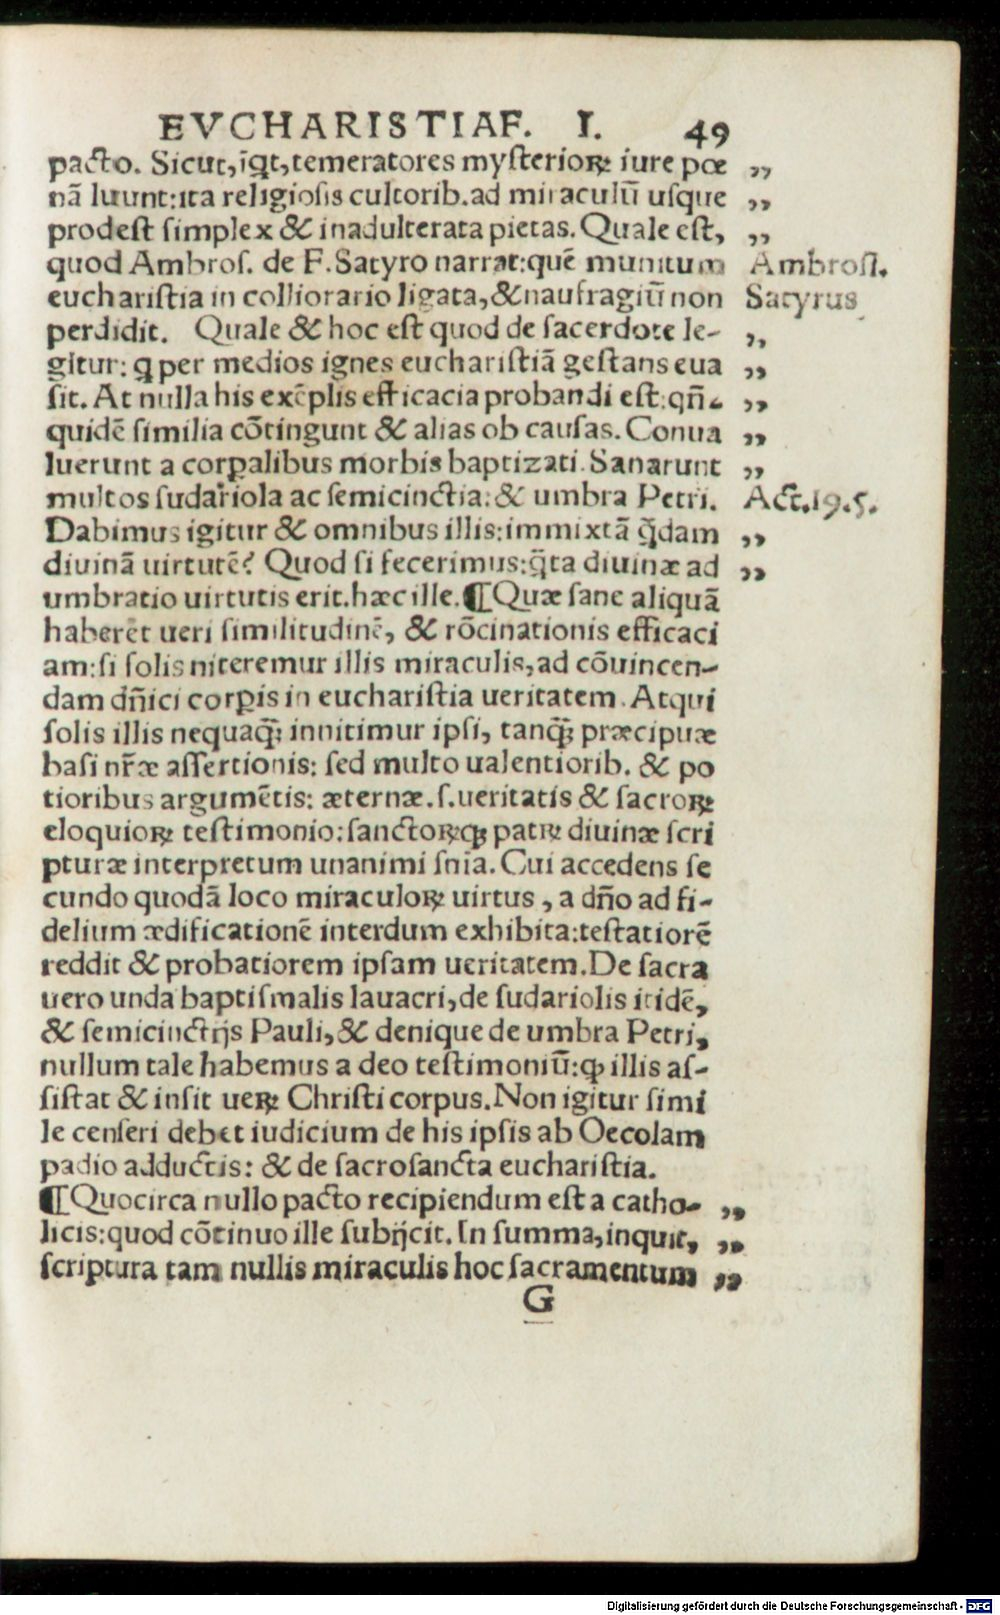 EVCHARISTIAE. I. 49
pacto. Sicut, īq̄t, temeratores mysterioꝝ iure pœ „
nā luunt: ita religiosis cultorib. ad miraculū usque „
prodest simplex & inadulterata pietas. Quale est, „
quod Ambros. de F. Satyro narrat: quē munitum Ambrosi.
eucharistia in colliorario ligata, & naufragiū non Satyrus
perdidit. Quale & hoc est quod de sacerdote le- „
gitur: q per medios ignes eucharistiā gestans eua „
sit. At nulla his exēplis efficacia probandi est: qñ- „
quidē similia cōtingunt & alias ob causas. Conua „
luerunt a corꝑalibus morbis baptizati. Sanarunt „
multos sudariola ac semicinctia: & umbra Petri. Act. 19. 5.
Dabimus igitur & omnibus illis: immixtā q̄dam „
diuinā uirtutē? Quod si fecerimus: q̄ta diuinæ ad „
umbratio uirtutis erit. hæc ille. ¶ Quæ sane aliquā
haberēt ueri similitudinē, & rōcinationis efficaci
am: si solis niteremur illis miraculis, ad cōuincen-
dam dñici corꝑis in eucharistia ueritatem. Atqui
solis illis nequaꝗ̃: innitimur ipsi, tanꝗ̃ præcipuæ
basi nr̄æ assertionis: sed multo ualentiorib. & po
tioribus argumētis: æternæ .s. ueritatis & sacroꝝ
eloquioꝝ testimonio: sanctoꝝqꝫ patꝝ diuinæ scri
pturæ interpretum unanimi snīa. Cui accedens se
cundo quodā loco miraculoꝝ uirtus, a dño ad fi-
delium ædificationē interdum exhibita: testatiorē
reddit & probatiorem ipsam ueritatem. De sacra
uero unda baptismalis lauacri, de sudariolis itidē,
& semicinctijs Pauli, & denique de umbra Petri,
nullum tale habemus a deo testimoniū: ꝙ illis as-
sistat & insit ueꝝ Christi corpus. Non igitur simi
le censeri debet iudicium de his ipsis ab Oecolam
padio adductis: & de sacrosancta eucharistia.
¶ Quocirca nullo pacto recipiendum est a catho- „
licis: quod cōtinuo ille subijcit. In summa, inquit, „
scriptura tam nullis miraculis hoc sacramentum „
G
Digitalisierung gefördert durch die Deutsche Forschungsgemeinschaft - DFG